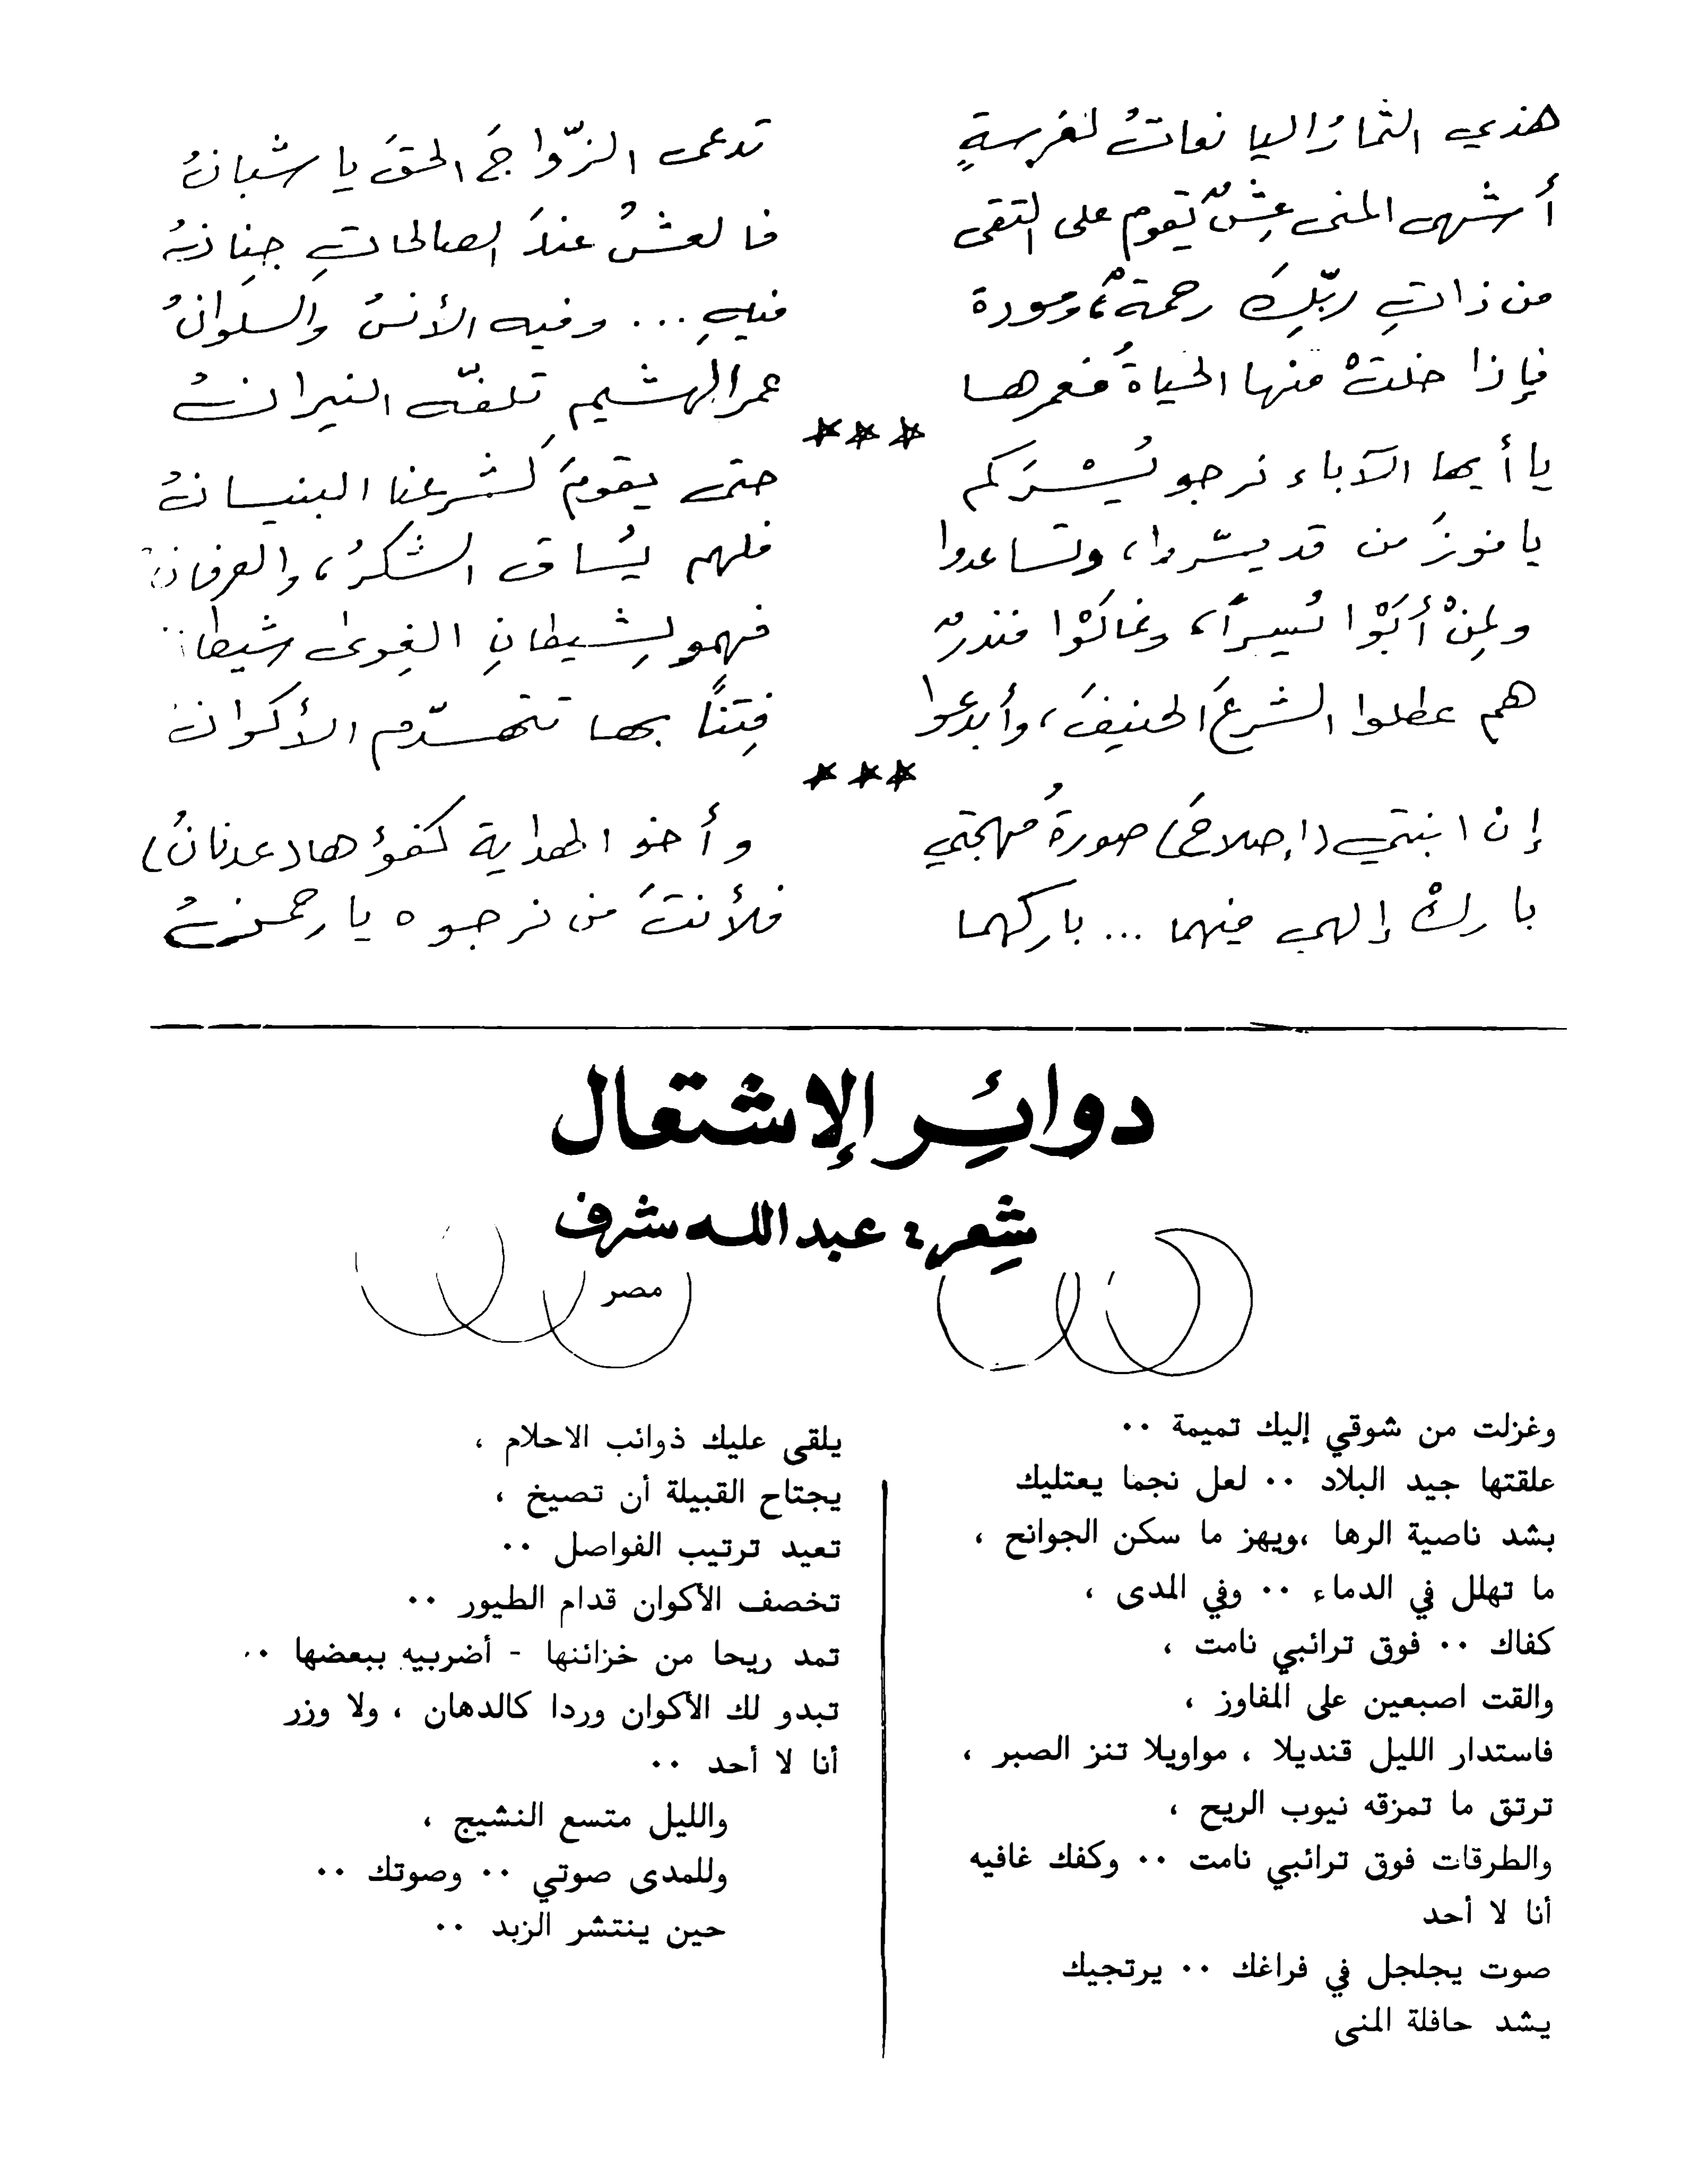 هذي الثمارُ اليانعاتُ لغرسةٍ تدعى الزّواجَ الحقَ يا شبانُ
أشهى المنى عشٌ تقوم على التقى فالعشُ عندَ الصالحاتِ جِنانهُ
من ذاتِ ربّكِ رحمةٌ، ومودة فيهِ ... وفيه الأنسُ والسلوانُ
فإذا خلتْ منها الحياةُ فعمرها عمر الهشيم تلفّه النيرانُ
***
يا أيها الآباء نرجو يُسْرَكم حتى يقومَ كشرعنا البنيانُ
يا فوزَ من قد يسّروا، وتساعدوا فلهم يُساق الشكرُ، والعرفانُ
ولمنْ أَبَوْا يُسراً، وغالَوْا فنذرٌ فهمو لِشيطانِ الغِوى شيطا
هم عطلوا الشرعَ الحنيفَ، وأبدعوا فِتناً بها تتهدّم الأكوانُ
***
إن ابنتي (إصلاحَ) صورةُ مهجتي وأخو الهداية كفؤها (عدنانُ)
باركْ إلهي فيهما ... باركهما فلأنتَ من نرجوه يا رحمنُ
دوائر الإشتعال
شعر: عبدالله شرف
مصر
وغزلت من شوقي إليك تميمة ..
علقتها جيد البلاد .. لعل نجما يعتليك
بشد ناصية الرها ،ويهز ما سكن الجوانح ،
ما تهلل في الدماء .. وفي المدى ،
كفاك .. فوق ترائبي نامت ،
والقت اصبعين على المفاوز ،
فاستدار الليل قنديلا ، مواويلا تنز الصبر ،
ترتق ما تمزقه نيوب الريح ،
والطرقات فوق ترائبي نامت .. وكفك غافيه
أنا لا أحد
صوت يجلجل في فراغك .. يرتجيك
يشد حافلة المنى
يلقى عليك ذوائب الاحلام ،
يجتاح القبيلة أن تصيخ ،
تعيد ترتيب الفواصل ..
تخصف الأكوان قدام الطيور ..
تمد ريحا من خزائنها - أضربيه ببعضها ..
تبدو لك الأكوان وردا كالدهان ، ولا وزر
أنا لا أحد ..
والليل متسع النشيج ،
وللمدى صوتي .. وصوتك ..
حين ينتشر الزبد ..